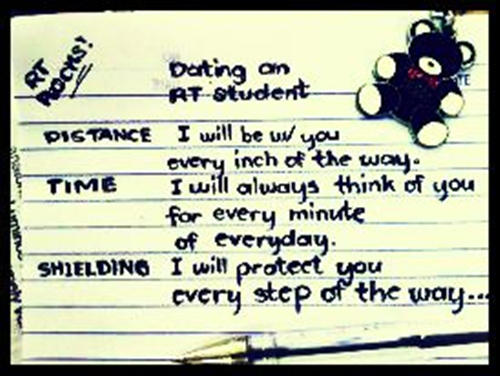 RT
ROCKS!
Dating an
RT student
DISTANCE I will be w/ you
every inch of the way.
TIME I will always think of you
for every minute
of everyday.
SHIELDING I will protect you
every step of the way...